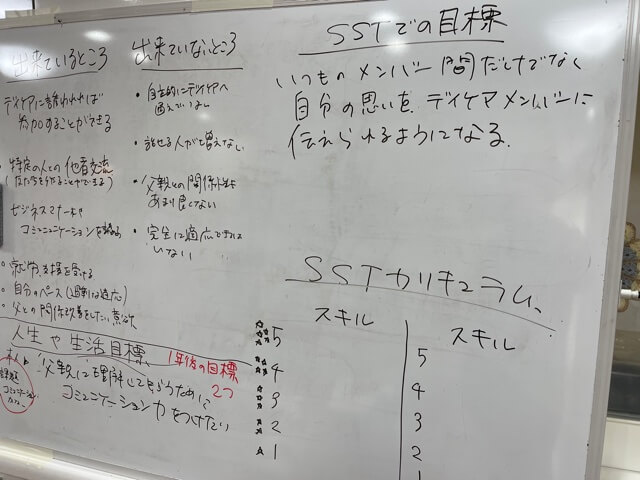 出来ているところ
デイケアに誘われれば
参加することができる
・特定の人との他者交流
ビジネスマナーや
コミュニケーションを
・自分のペース
・父との関係改善をしたい意欲
出来ていないところ
・自主的にデイケアへ
・話せる人が
・父親との関係性は
あまり良くない
・完全に適応できては
いない
SSTでの目標
いつものメンバー間だけでなく
自分の思いを、デイケアメンバーに
伝えられるようになる。
人生や生活目標
1年後の目標
2つ
本人
父親に理解してもらうために
コミュニケーション力をつけたい
課題
コミュニケーション
SSTカリキュラム
スキル
5
4
3
2
1
スキル
5
4
3
2
1